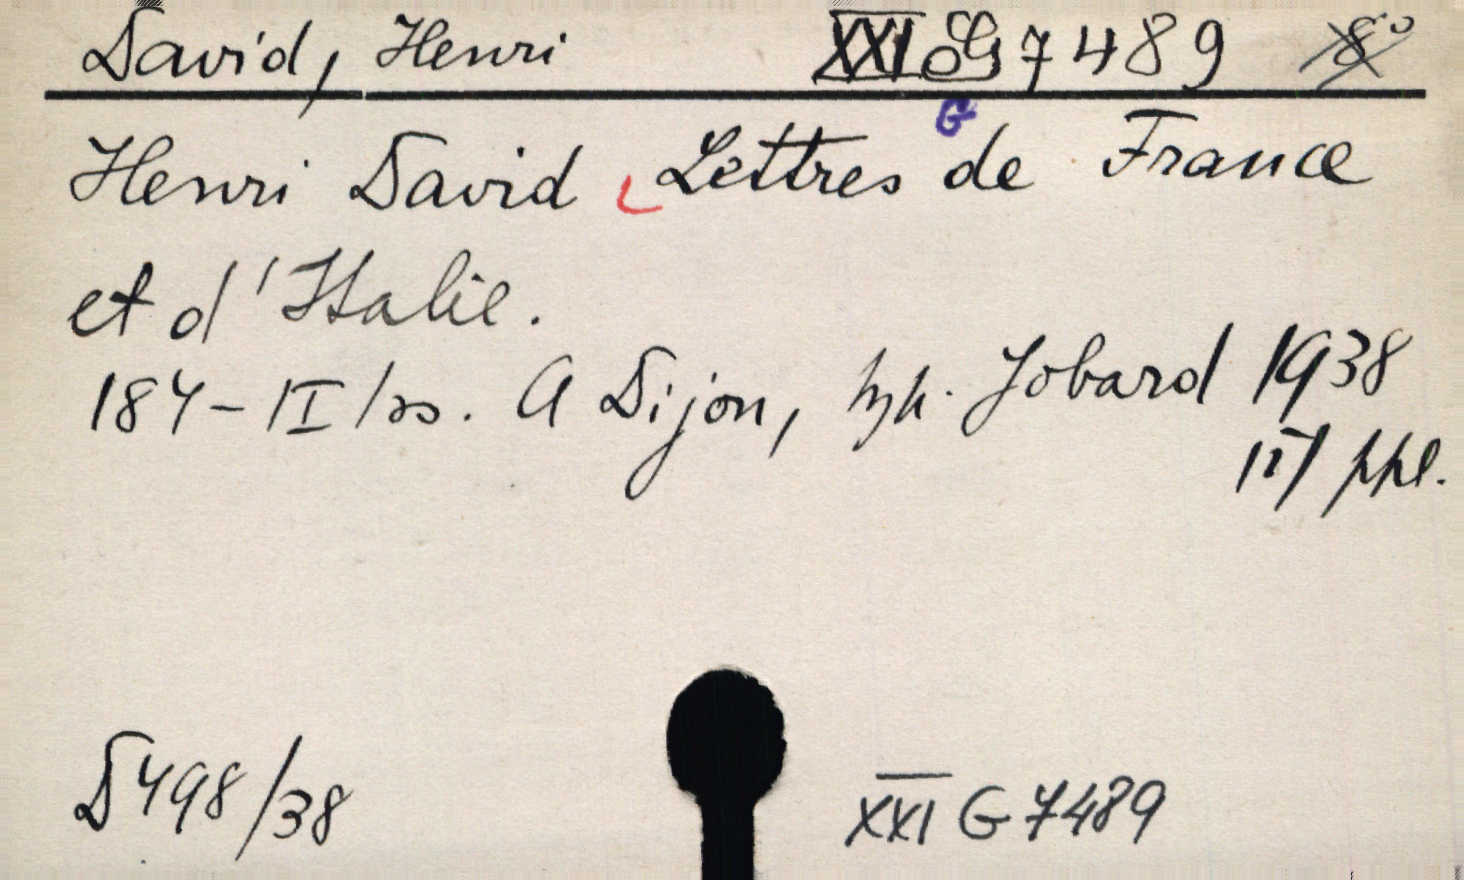 David, Henri XXI G 7489 8°
G
Henri David Lettres de France
et d'Italie.
184-/I/ss. A Dijon, typ. Jobard 1938
/i/ ppl.
D 498/38 XXI G 7489